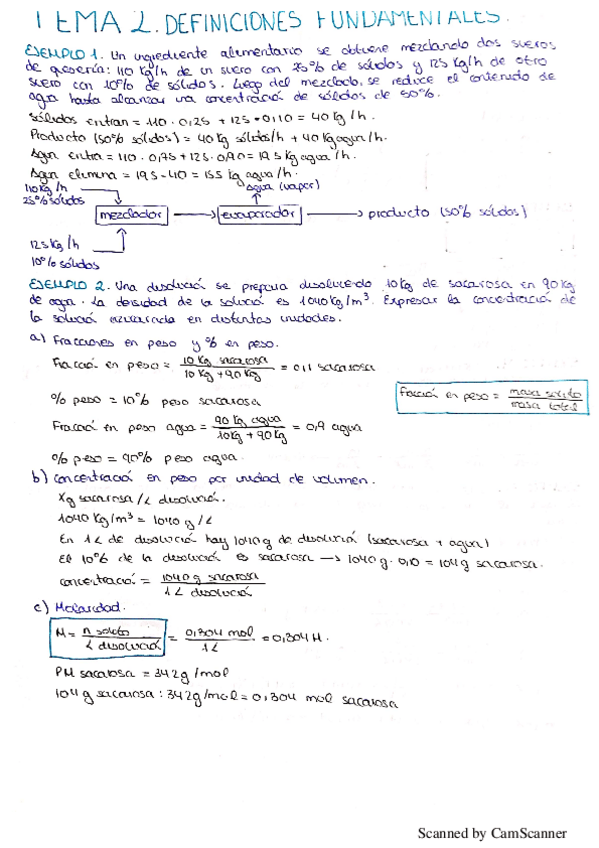 TEMA 2. DEFINICIONES FUNDAMENTALES.
EJEMPLO 1. Un ingrediente alimentario se obtiene mezclando dos sueros
de quesería: 110 kg/h de un suero con 25% de sólidos y 125 kg/h de otro
suero con 10% de sólidos. Luego del mezclado, se reduce el contenido de
agua hasta alcanzar una concentración de sólidos de 50%.
Sólidos entran = 110 · 0,25 + 125 · 0,10 = 40 kg/h.
Producto (50% sólidos) = 40 kg sólidos/h + 40 kg agua/h.
Agua entra = 110 · 0,75 + 125 · 0,90 = 195 kg agua/h.
Agua elimina = 195 - 40 = 155 kg agua/h.
110 kg/h
25% sólidos
agua (vapor)
mezclador → evaporador → producto (50% sólidos)
125 kg/h
10% sólidos
EJEMPLO 2. Una disolución se prepara disolviendo 10 kg de sacarosa en 90 kg
de agua. La densidad de la solución es 1040 kg/m³. Expresar la concentración de
la solución azucarada en distintas unidades.
a) Fracciones en peso y % en peso.
Fracción en peso = 10 kg sacarosa / 10 kg + 90 kg = 0,1 sacarosa
% peso = 10% peso sacarosa
Fracción en peso = masa soluto / masa total
Fracción en peso agua = 90 kg agua / 10 kg + 90 kg = 0,9 agua
% peso = 90% peso agua.
b) Concentración en peso por unidad de volumen.
Kg sacarosa / L disolución.
1040 kg/m³ = 1040 g/L
En 1 L de disolución hay 1040 g de disolución (sacarosa + agua)
El 10% de la disolución es sacarosa → 1040 g · 0,10 = 104 g sacarosa.
concentración = 1040 g sacarosa / 1 L disolución
c) Molaridad.
M = n soluto / L disolución = 0,304 mol / 1 L = 0,304 M.
PM sacarosa = 342 g/mol
104 g sacarosa : 342 g/mol = 0,304 mol sacarosa
Scanned by CamScanner